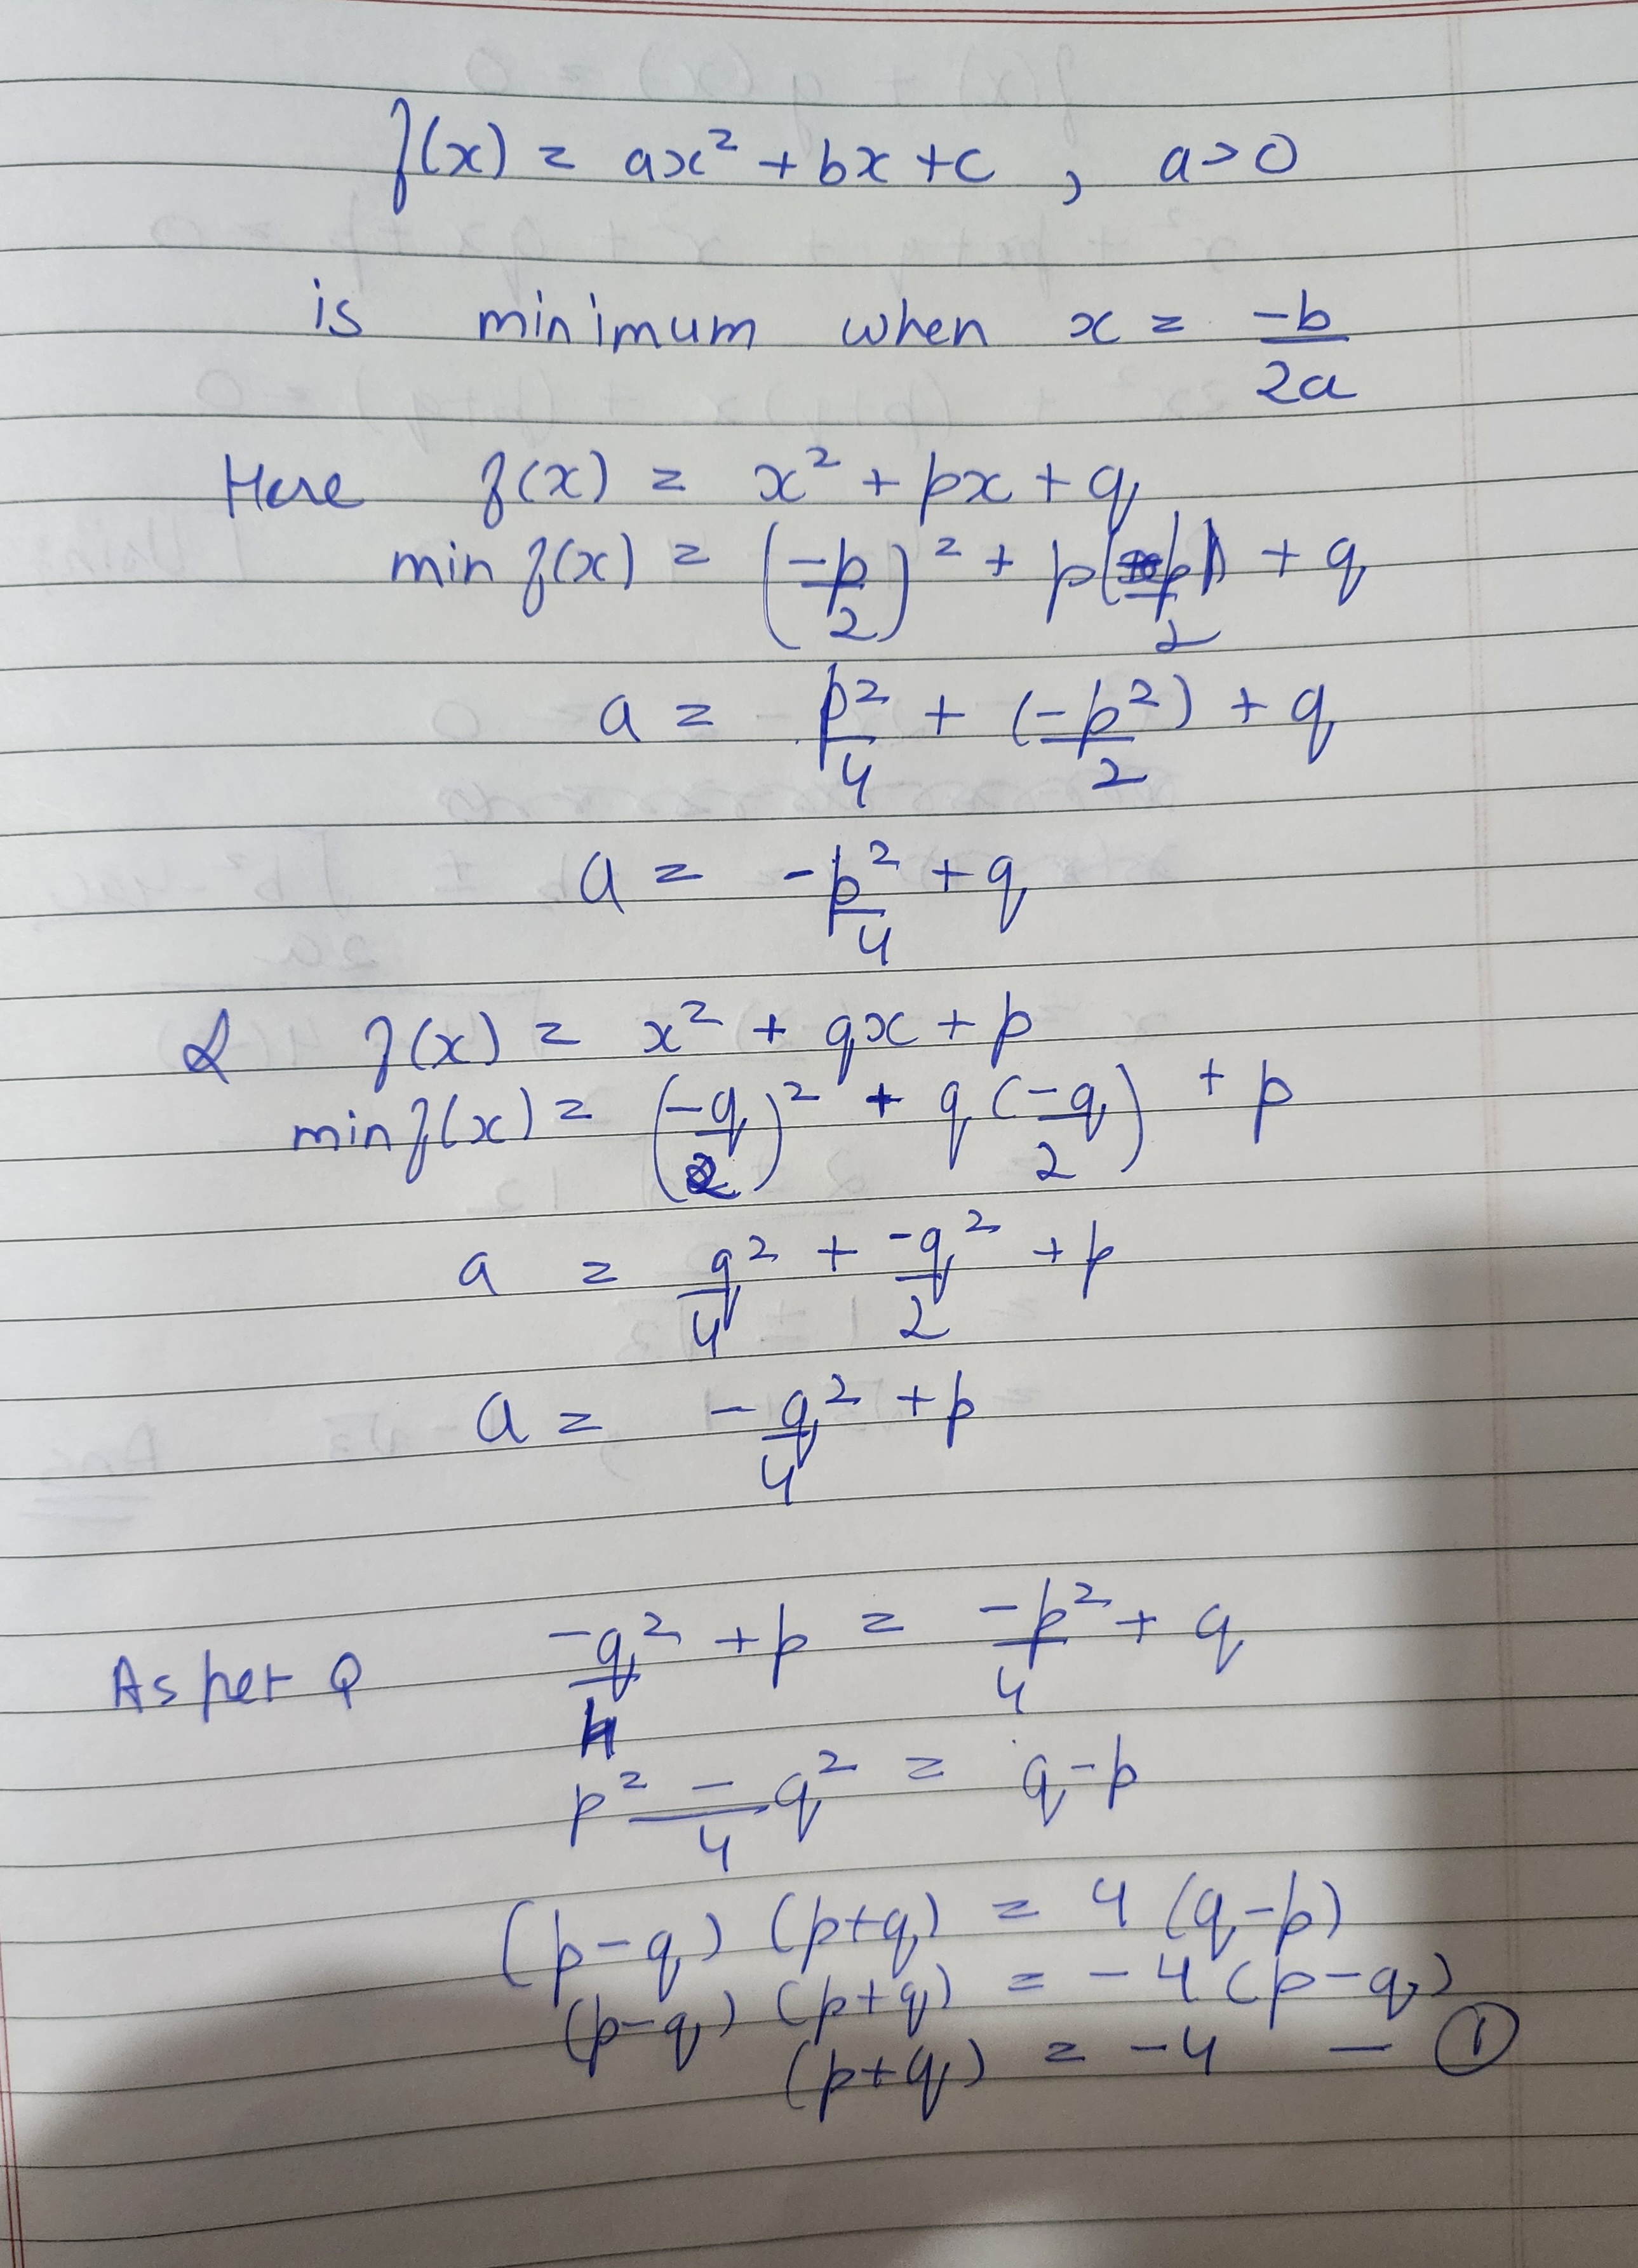 f(x) = ax² + bx + c , a>0
is minimum when x = -b/2a
Here f(x) = x² + px + q
min f(x) = (-p/2)² + p(-p/2) + q
a = p²/4 + (-p²/2) + q
a = -p²/4 + q
& f(x) = x² + qx + p
min f(x) = (-q/2)² + q(-q/2) + p
a = q²/4 + -q²/2 + p
a = -q²/4 + p
As per Q -q²/4 + p = -p²/4 + q
p² - q²/4 = q-p
(p-q) (p+q) = 4 (q-p)
(p-q) (p+q) = -4 (p-q)
(p+q) = -4 — ①